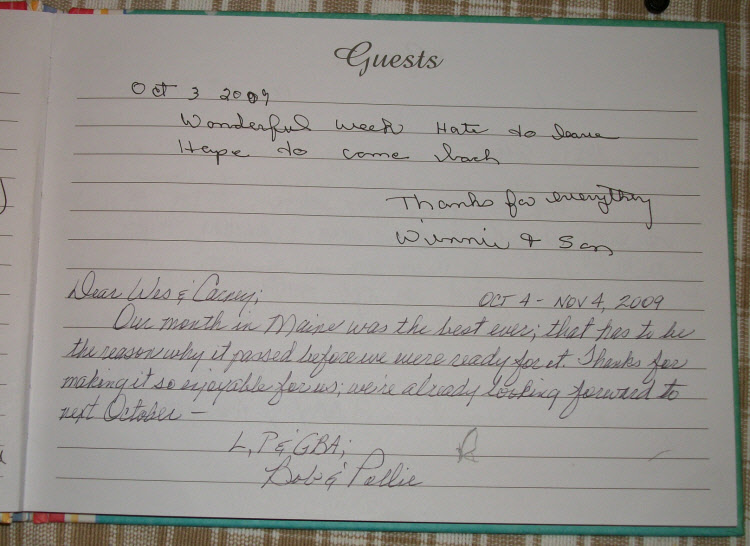 Guests
Oct 3 2009
Wonderful week Hate to leave
Hope to come back
Thanks for everything
Winnie & San
Dear Wes & Carney;
OCT 4 - NOV 4, 2009
Our month in Maine was the best ever; that has to be
the reason why it passed before we were ready for it. Thanks for
making it so enjoyable for us; we're already looking forward to
next October -
L, P & GBA;
Bob & Pollie